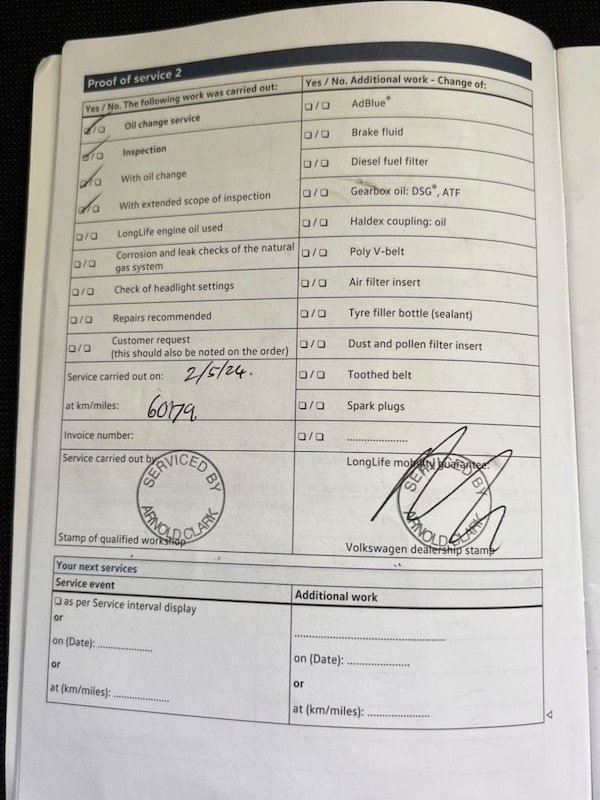 Proof of service 2
Yes / No. The following work was carried out:
☑/❏ Oil change service
☑/❏ Inspection
☑/❏ With oil change
☑/❏ With extended scope of inspection
❏/❏ LongLife engine oil used
❏/❏ Corrosion and leak checks of the natural
gas system
❏/❏ Check of headlight settings
❏/❏ Repairs recommended
❏/❏ Customer request
(this should also be noted on the order)
Service carried out on: 2/5/24.
at km/miles: 60179
Invoice number:
Service carried out by
SERVICED BY
ARNOLD CLARK
Stamp of qualified workshop
Yes / No. Additional work - Change of:
❏/❏ AdBlue®
❏/❏ Brake fluid
❏/❏ Diesel fuel filter
❏/❏ Gearbox oil: DSG®, ATF
❏/❏ Haldex coupling: oil
❏/❏ Poly V-belt
❏/❏ Air filter insert
❏/❏ Tyre filler bottle (sealant)
❏/❏ Dust and pollen filter insert
❏/❏ Toothed belt
❏/❏ Spark plugs
❏/❏ ....................
LongLife mobility guarantee:
SERVICED BY
ARNOLD CLARK
Volkswagen dealership stamp
Your next services
Service event
❏ as per Service interval display
or
on (Date): ..................
or
at (km/miles): ..................
Additional work
..................................................
on (Date): ....................
or
at (km/miles): ....................